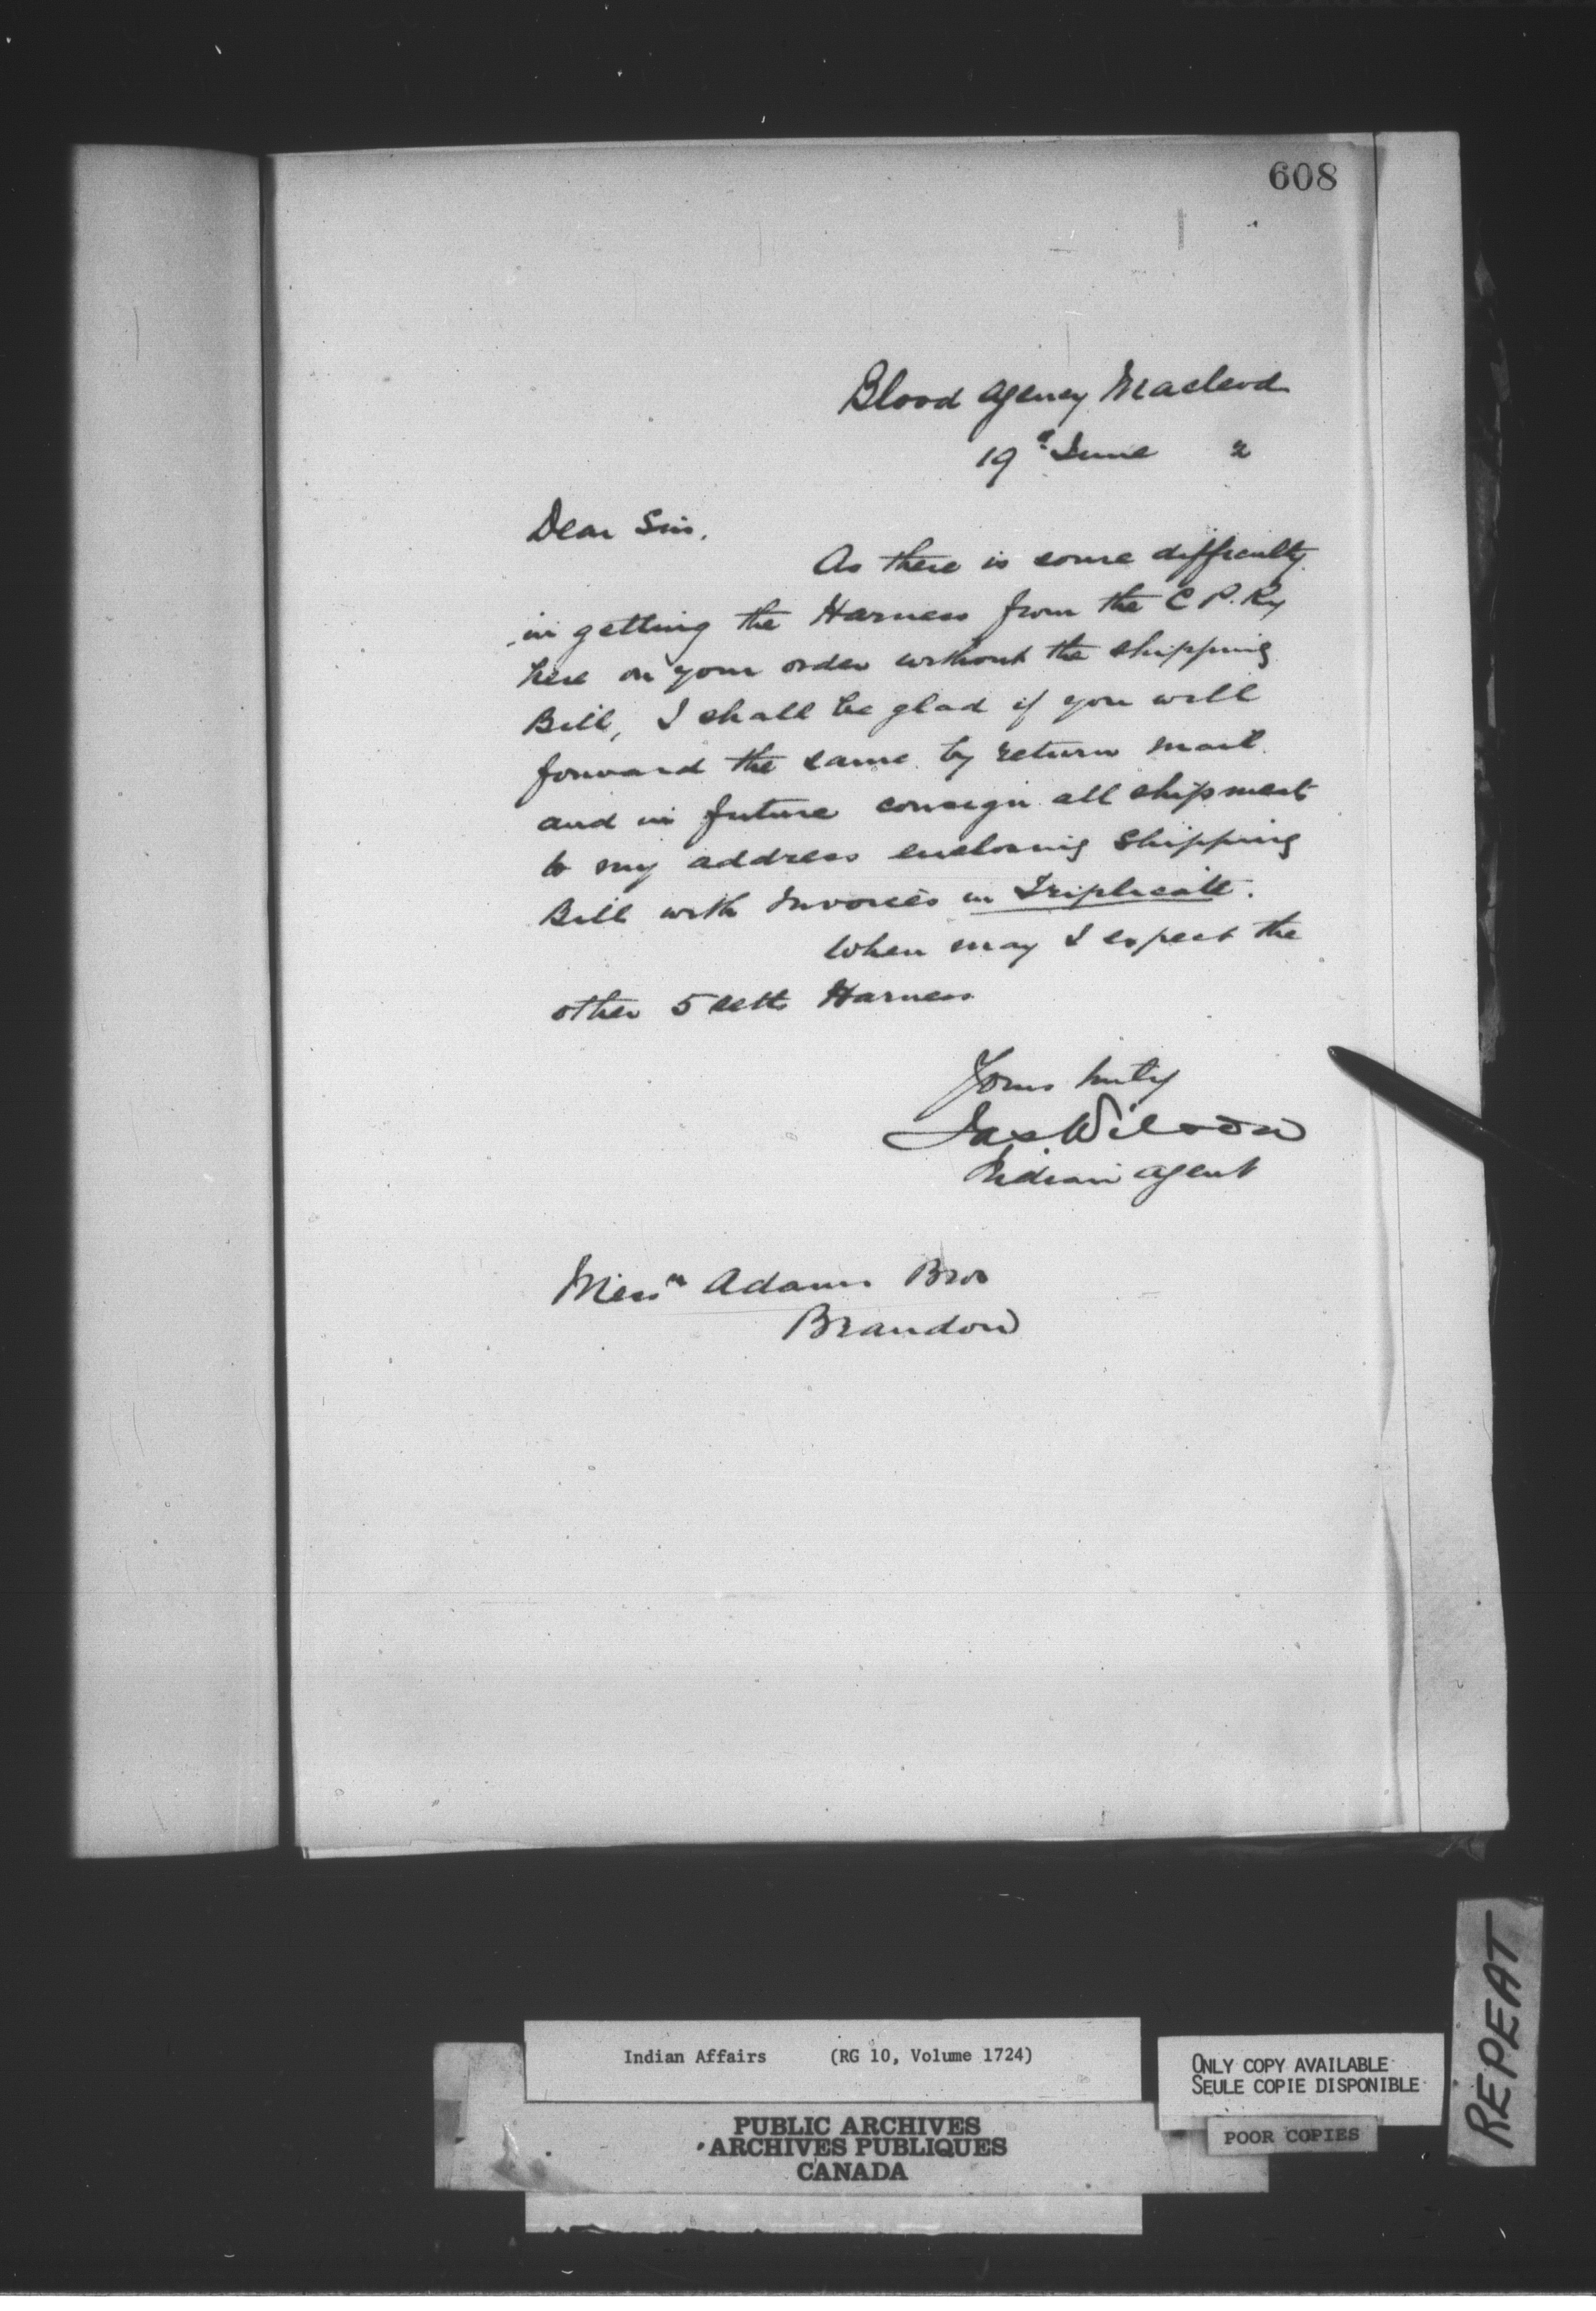 608
Blood Agency Macleod
19th June 2
Dear Sirs,
As there is some difficulty
in getting the Harness from the C P. Ry
here on your order without the shipping
Bill, I shall be glad if you will
forward the same by return mail
and in future consign all shipment
to my address enclosing Shipping
Bill with Invoices in Triplicate.
When may I expect the
other 5 setts Harness
Yours truly
Jas Wilson
Indian Agent
Messrs Adams Bros
Brandon
Indian Affairs (RG 10, Volume 1724)
PUBLIC ARCHIVES
ARCHIVES PUBLIQUES
CANADA
ONLY COPY AVAILABLE
SEULE COPIE DISPONIBLE
POOR COPIES
REPEAT